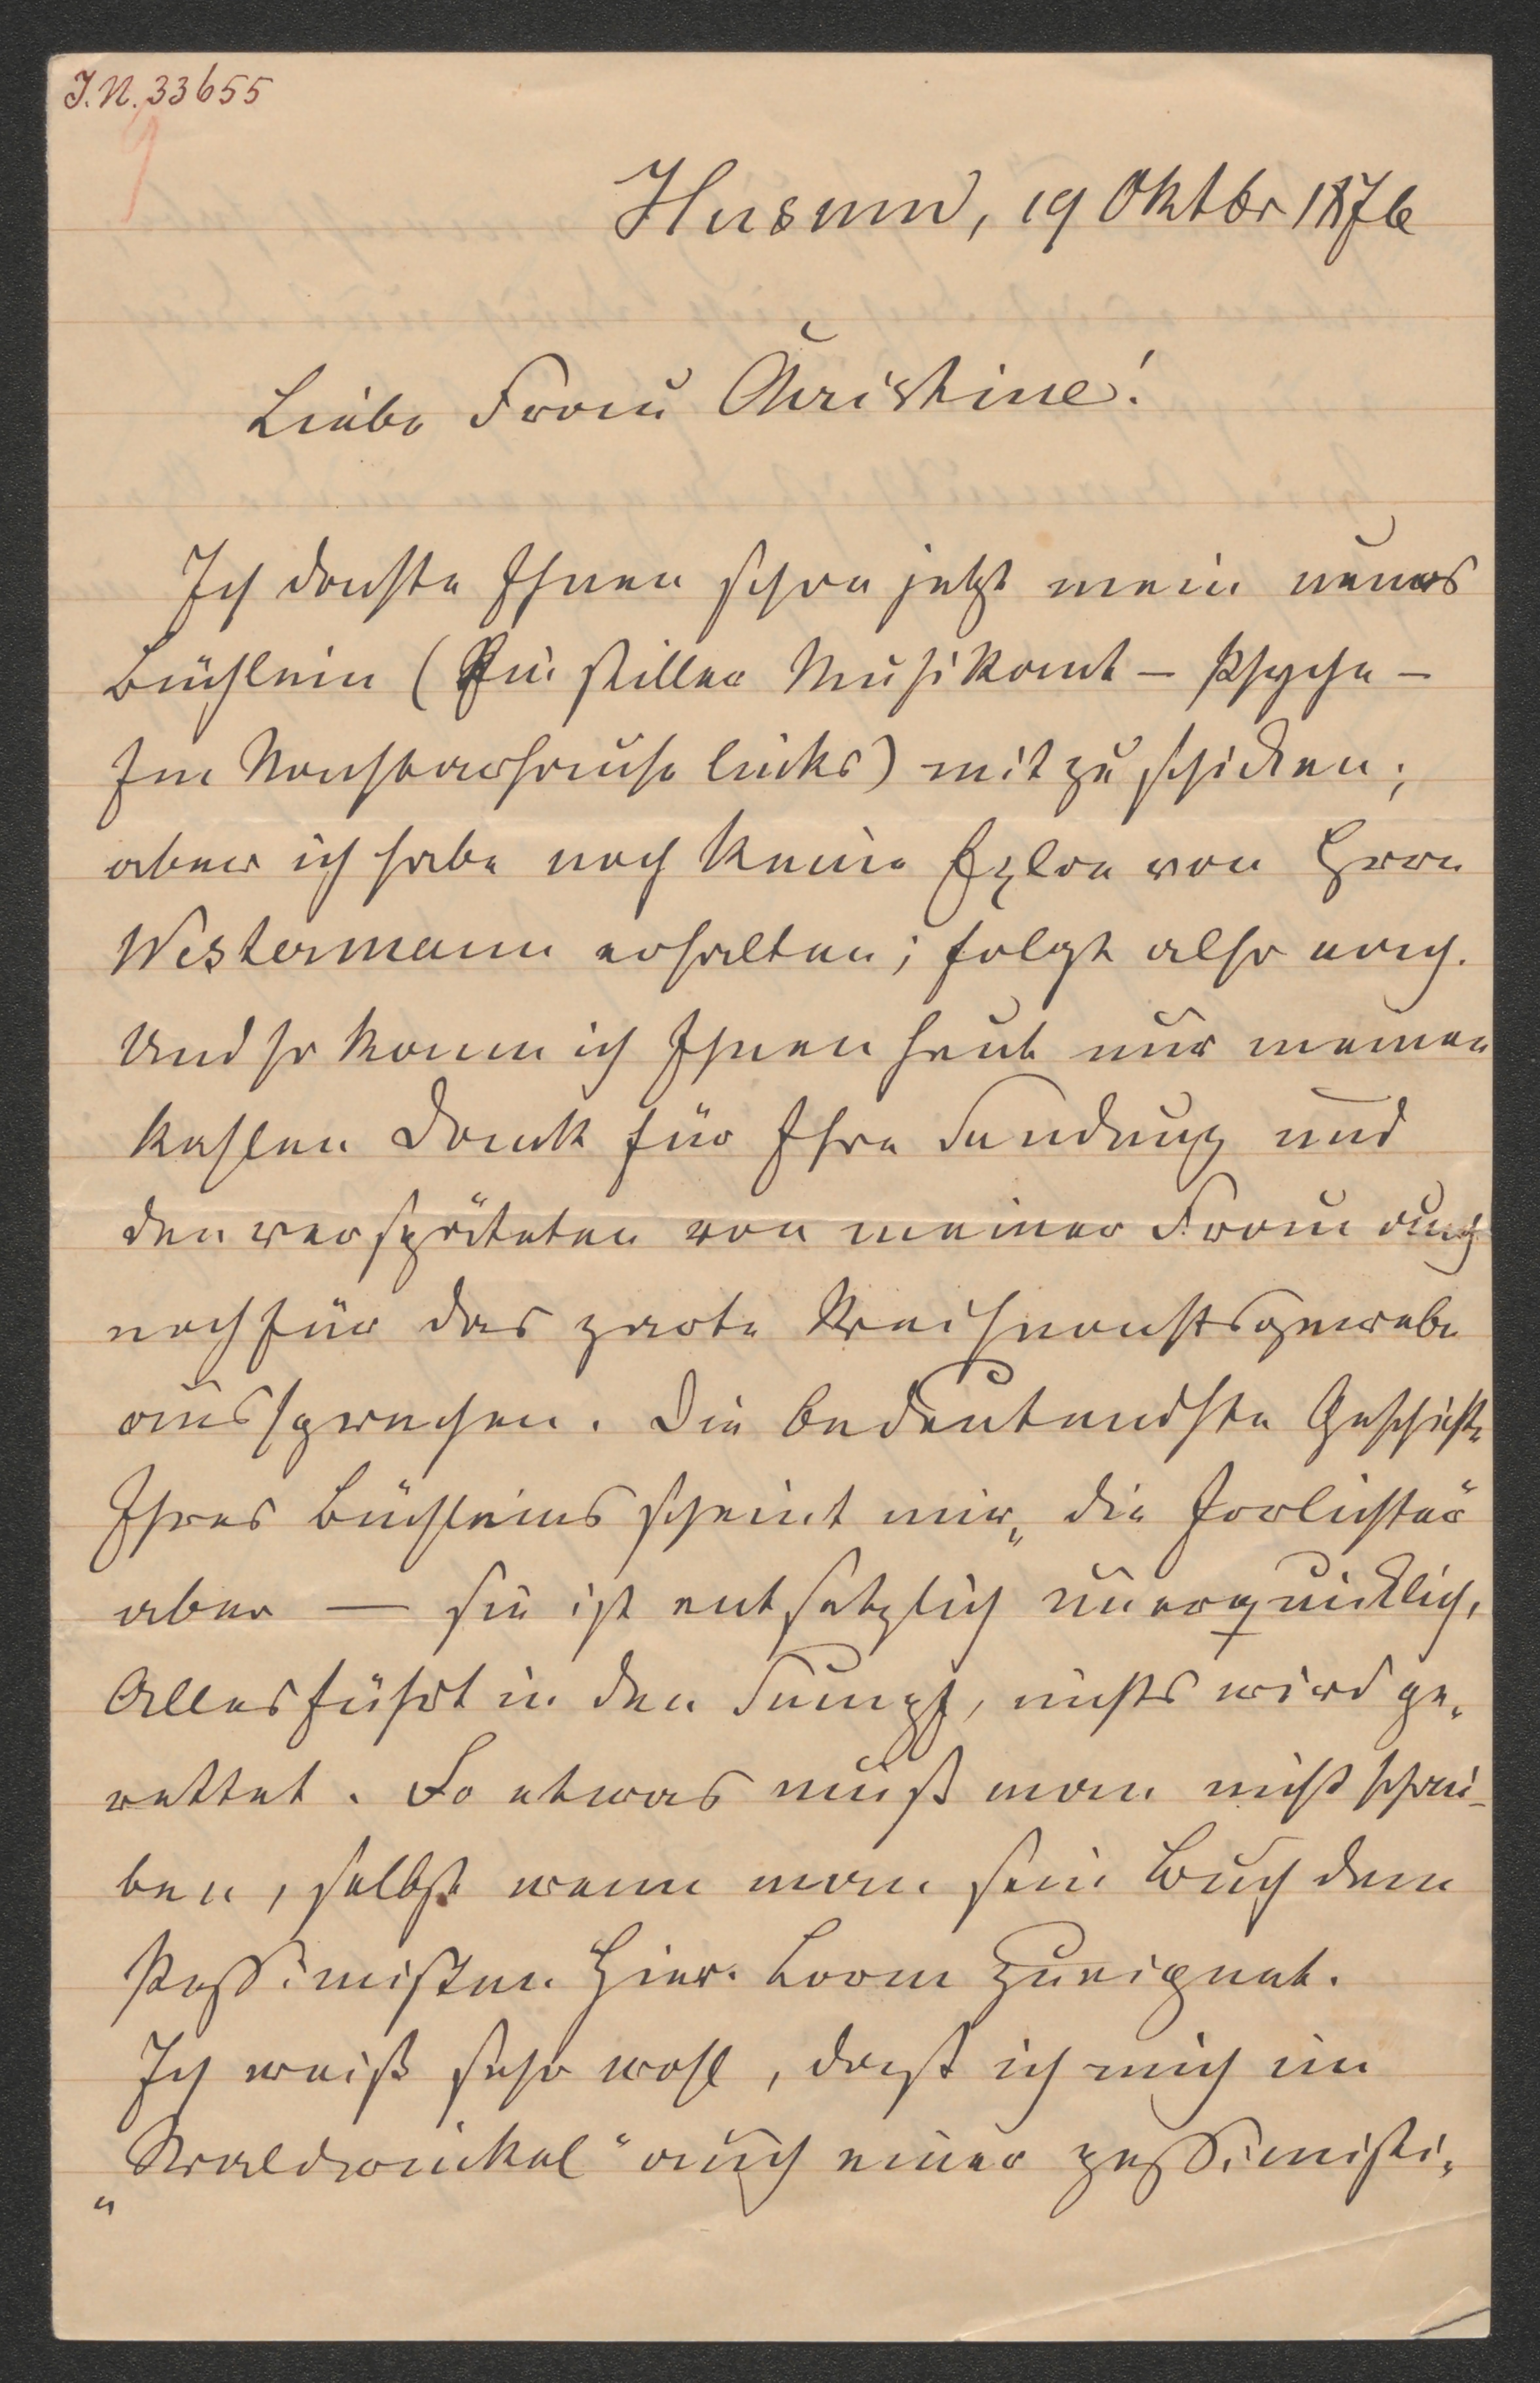 J. N. 33655
Husum, 19 Oktbr 1876
Liebe Frau Christine!
Ich dachte Ihnen schon jetzt mein neues
Büchlein (Ein stiller Musikant – Psyche –
Im Nachbarhause links) mitzuschicken;
aber ich habe noch keine Explre von Herrn
Westermann erhalten; folgt also nach.
Und so kann ich Ihnen heut nur meinen
kahlen Dank für Ihre Sendung und
den verspäteten von meiner Frau auch
noch für das zarte Weihnachtsgewebe
aussprechen. Die bedeutendste Geschichte
Ihres Büchleins scheint mir „die
aber — sie ist entsetzlich unerquicklich,
Alles führt in den Sumpf, nichts wird ge-
rettet. So etwas muß man nicht schrei-
ben, selbst wenn man sein Buch dem
Pessimisten Hier. Lorm zueignet.
Ich weiß sehr wohl, daß ich mich im
„Waldwinkel“ auch einer pessimisti-